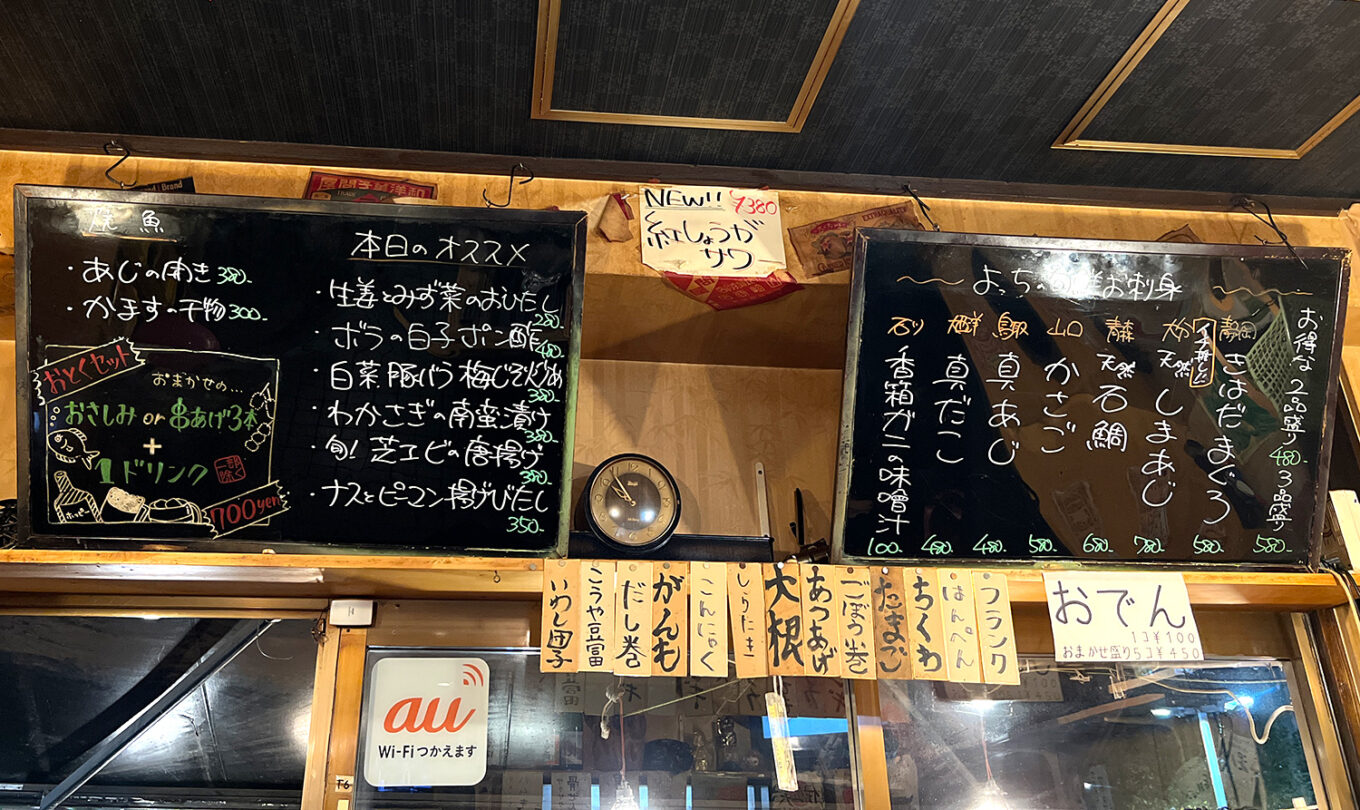 焼魚
・あじの開き 380-
・かますの干物 300-
おとくセット
おまかせの…
おさしみ or 串あげ3本
+
1ドリンク
一部除く
700yen
ホッピー
本日のオススメ
・生姜とみず菜のおひたし
280-
・ボラの白子ポン酢
480-
・白菜豚バラ梅じそ
380-
・わかさぎの南蛮漬け
380-
・旬!芝エビの唐揚げ
380-
・ナスとピーマン揚げびたし
350-
NEW!! ¥380
紅しょうが
サワー
よっちの お刺身
お得な2品盛り480- 3品盛り
580-
静岡 きはだまぐろ 580-
大分 天然 しまあじ 780-
天然 石鯛 680-
山口 かさご 580-
真あじ 480-
真だこ 480-
石川 香箱ガニの味噌汁 100-
フランク
はんぺん
ちくわ
たまご
ごぼう巻
あつあげ
大根
しらたき
こんにゃく
がんも
だし巻
こうや豆富
いわし団子
おでん
1コ¥100
おまかせ盛り5コ¥450
au
Wi-Fiつかえます
T6